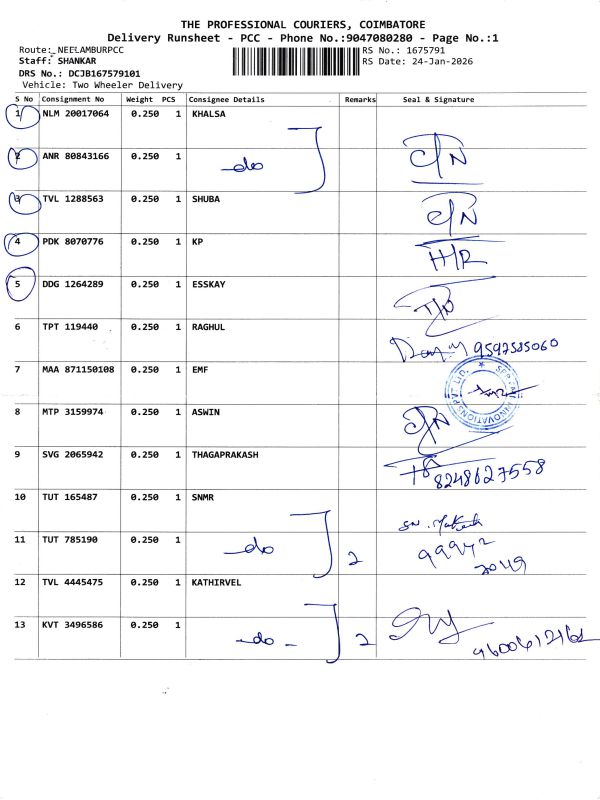 THE PROFESSIONAL COURIERS, COIMBATORE
Delivery Runsheet - PCC - Phone No.:9047080280 - Page No.:1
Route: NEELAMBURPCC RS No.: 1675791
Staff: SHANKAR RS Date: 24-Jan-2026
DRS No.: DCJB167579101
Vehicle: Two Wheeler Delivery
S No Consignment No Weight PCS Consignee Details Remarks Seal & Signature
1 NLM 20017064 0.250 1 KHALSA
2 ANR 80843166 0.250 1 -do
3 TVL 1288563 0.250 1 SHUBA
4 PDK 8070776 0.250 1 KP
5 DDG 1264289 0.250 1 ESSKAY
6 TPT 119440 0.250 1 RAGHUL
7 MAA 871150108 0.250 1 EMF
8 MTP 3159974 0.250 1 ASWIN
9 SVG 2065942 0.250 1 THAGAPRAKASH 8248627558
10 TUT 165487 0.250 1 SNMR
11 TUT 785190 0.250 1 -do 2 99942
2049
12 TVL 4445475 0.250 1 KATHIRVEL
13 KVT 3496586 0.250 1 -do- 2